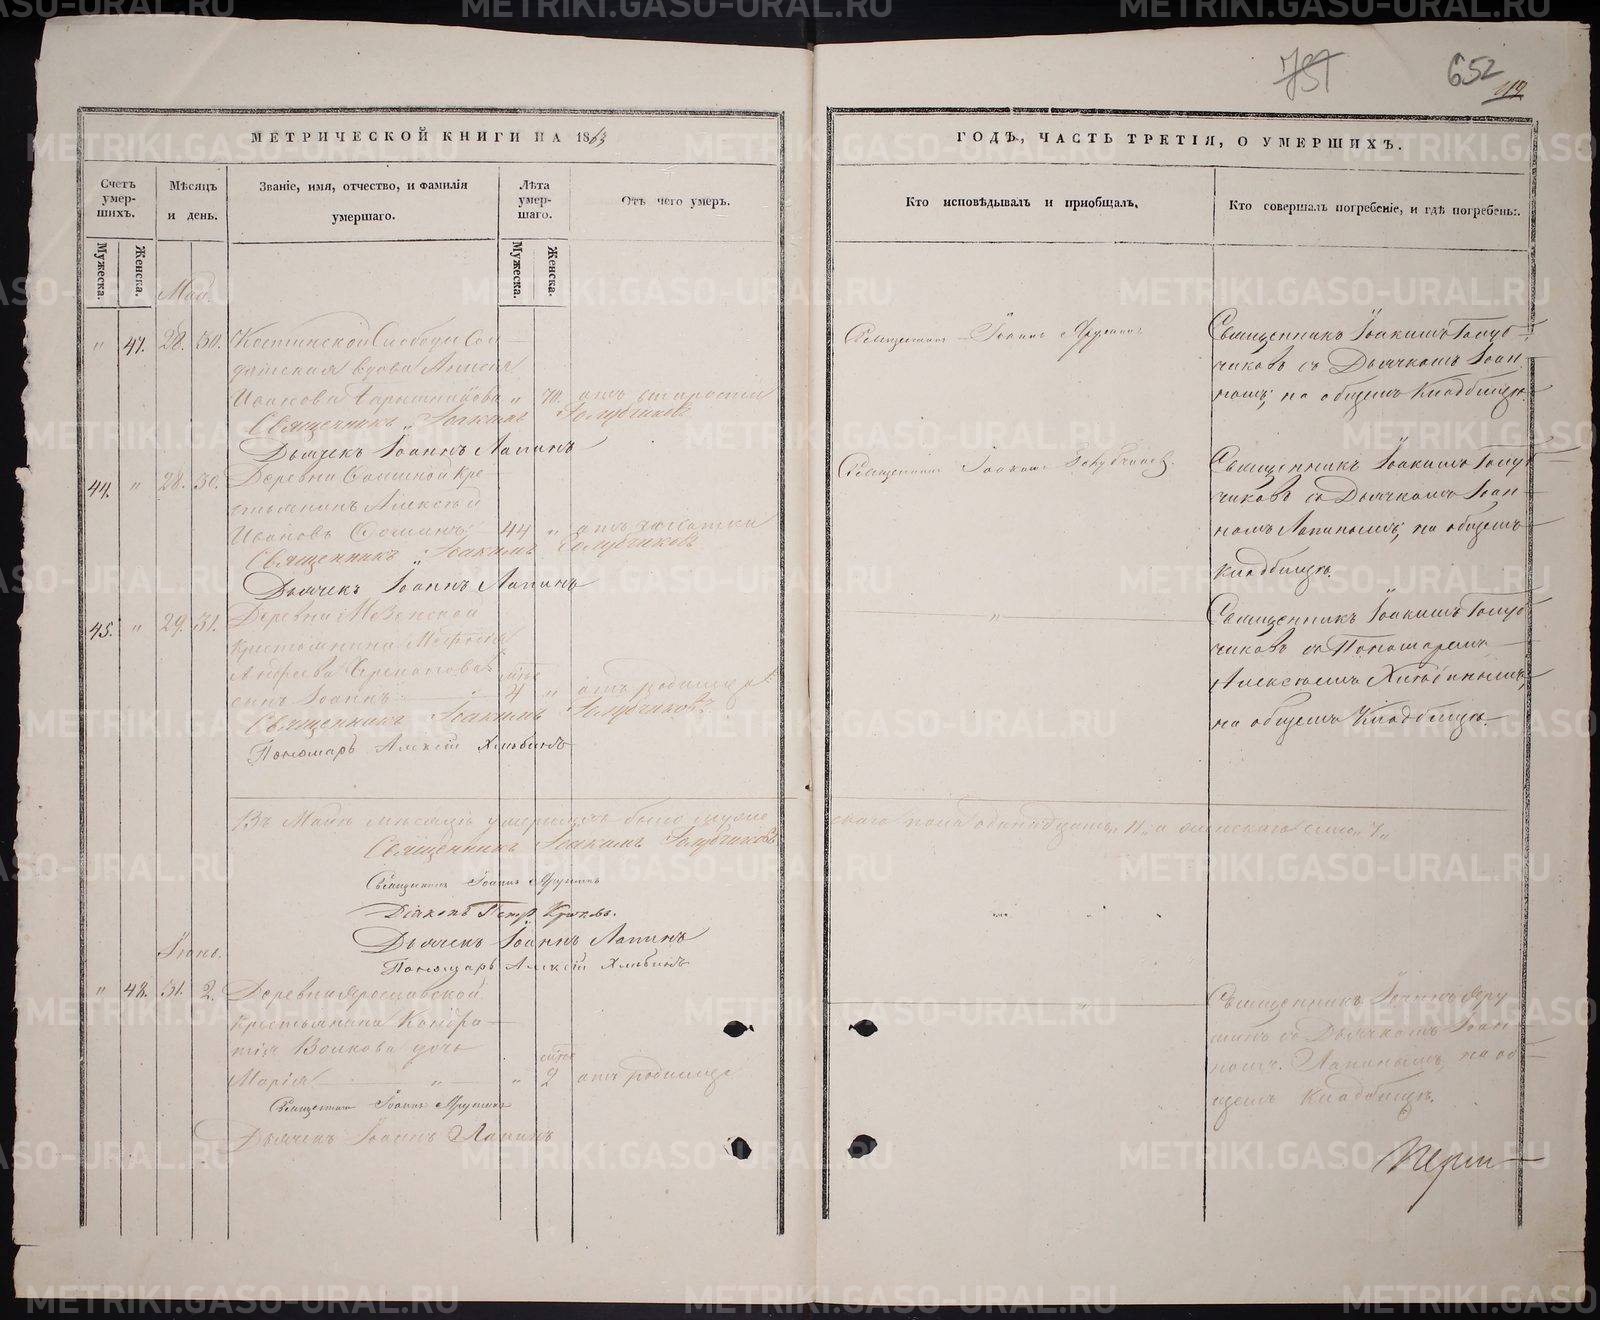 METRIKI.GASO-URAL.RU
757
652
МЕТРИЧЕСКОЙ КНИГИ НА 1863
ГОДЪ, ЧАСТЬ ТРЕТІЯ, О УМЕРШИХЪ.
Счетъ умер-
шихъ.
Мѣсяцъ
и день.
Званіе, имя, отчество, и фамилія
умершаго.
Лѣта
умер-
шаго.
Отъ чего умеръ.
Кто исповѣдывалъ и пріобщалъ.
Кто совершалъ погребеніе, и гдѣ погребены:
Мужеска.
Женска.
Мужеска.
Женска.
Май.
" 47. 28. 30. Костинской Слободы Сол-
датская вдова Анисія
Иванова " 70. отъ старости
Священникъ Іоакимъ Голубчиковъ
Дьячекъ Іоаннъ Лапинъ
Священникъ Іоаннъ
Священникъ Іоакимъ Голуб-
чиковъ съ Дьячкомъ Іоан-
номъ, на общемъ Кладбищѣ.
44. " 28. 30. Деревни Кре-
стьянинъ Алексѣй
Ивановъ 44 " отъ чахотки
Священникъ Іоакимъ Голубчиковъ
Дьячекъ Іоаннъ Лапинъ
Священникъ Іоакимъ Голубчиковъ.
Священникъ Іоакимъ Голуб-
чиковъ съ Дьячкомъ Іоан-
номъ Лапинымъ, на общемъ
Кладбищѣ.
45. " 29. 31. Деревни
Крестьянина
Андреева Черепанова
сынъ Іоаннъ 4 " отъ родимца
Священникъ Іоакимъ Голубчиковъ
Пономарь Алексій Хлыбинъ
"
Священникъ Іоакимъ Голуб-
чиковъ съ Пономаремъ
Алексѣемъ Хлыбинымъ,
на общемъ Кладбищѣ.
Въ Маѣ мѣсяцѣ умершихъ было муже-
скаго пола одинадцать 11, а женскаго семь 7,
Священникъ Іоакимъ Голубчиковъ
Священникъ Іоаннъ
Діаконъ Петръ
Дьячекъ Іоаннъ Лапинъ
Пономарь Алексій Хлыбинъ
Іюнь.
" 48. 31. 2. Деревни Ярославской
Крестьянина Кондра-
тія Волкова дочь
Марія " " 2 отъ родимца
Священникъ Іоаннъ
Дьячекъ Іоаннъ Лапинъ
"
Священникъ Іоаннъ
съ Дьячкомъ Іоан-
номъ Лапинымъ, на об-
щемъ Кладбищѣ.